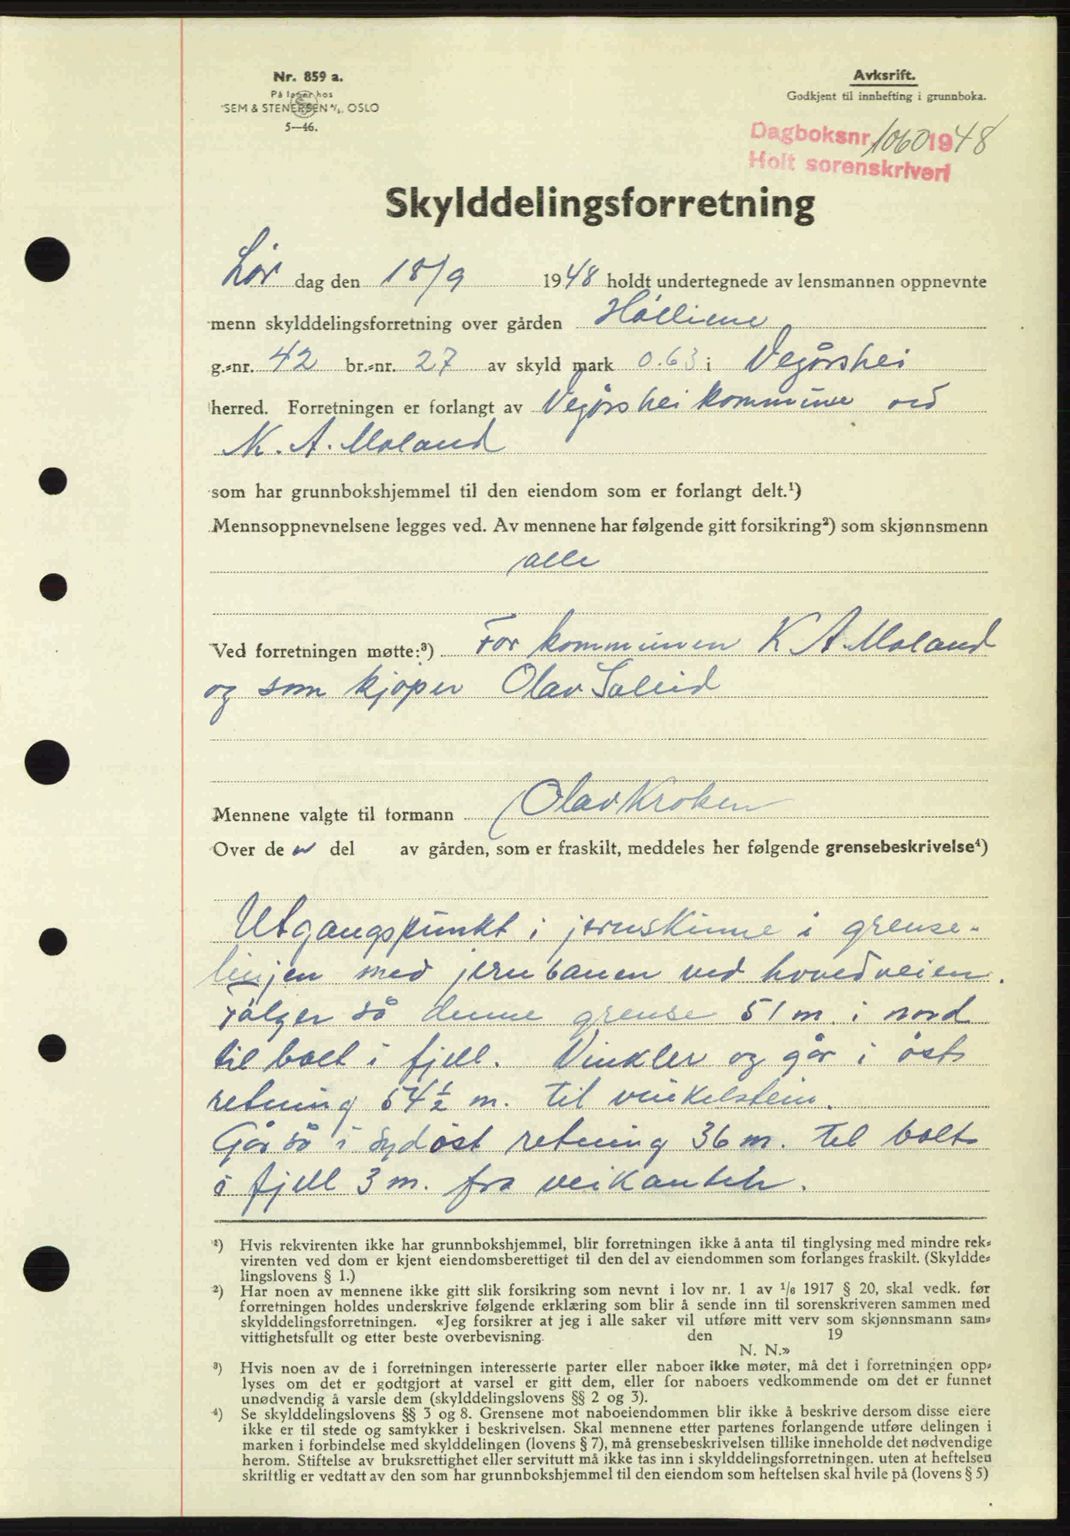 Nr. 859 a.
På lager hos
SEM & STENERSEN A/S, OSLO
5—46.
Avksrift.
Godkjent til innhefting i grunnboka.
Dagboksnr. 1060 1948
Holt sorenskriveri
Skylddelingsforretning
Lør dag den 18/9 1948 holdt undertegnede av lensmannen oppnevnte
menn skylddelingsforretning over gården
g.-nr. 42 br.-nr. 27 av skyld mark 0.63 i Vegårshei
herred. Forretningen er forlangt av Vegårshei kommune ved
K. A. Moland
som har grunnbokshjemmel til den eiendom som er forlangt delt.¹)
Mennsoppnevnelsene legges ved. Av mennene har følgende gitt forsikring²) som skjønnsmenn
alle
Ved forretningen møtte:³) For kommunen K A. Moland
og som kjøper Olav
Mennene valgte til formann Olav Kroken
Over de n del av gården, som er fraskilt, meddeles her følgende grensebeskrivelse⁴)
Utgangspunkt i jernskinne i grense-
linjen med jernbanen ved hovedveien.
Følger så denne grense 51 m. i nord
til bolt i fjell. Vinkler og går i øst
retning 54½ m. til vinkelstein.
Går så i sydøst retning 36 m. til bolt
i fjell 3 m. fra veikanten.
¹) Hvis rekvirenten ikke har grunnbokshjemmel, blir forretningen ikke å anta til tinglysing med mindre rek-
virenten ved dom er kjent eiendomsberettiget til den del av eiendommen som forlanges fraskilt. (Skyldde-
lingslovens § 1.)
²) Har noen av mennene ikke gitt slik forsikring som nevnt i lov nr. 1 av 1/6 1917 § 20, skal vedk. før
forretningen holdes underskrive følgende erklæring som blir å sende inn til sorenskriveren sammen med
skylddelingsforretningen. «Jeg forsikrer at jeg i alle saker vil utføre mitt verv som skjønnsmann sam-
vittighetsfullt og etter beste overbevisning. den 19
N. N.»
³) Hvis noen av de i forretningen interesserte parter eller naboer ikke møter, må det i forretningen opp-
lyses om det er godtgjort at varsel er gitt dem, eller for naboers vedkommende om det er funnet
unødvendig å varsle dem (skylddelingslovens §§ 2 og 3).
⁴) Se skylddelingslovens §§ 3 og 8. Grensene mot naboeiendommen blir ikke å beskrive dersom disse eiere
ikke er til stede og samtykker i beskrivelsen. Skal mennene etter partenes forlangende utføre delingen i
marken i forbindelse med skylddelingen (lovens § 7), må grensebeskrivelsen tillike inneholde det nødvendige
herom. Stiftelse av bruksrettighet eller servitutt må ikke tas inn i skylddelingsforretningen. uten at heftelsen
skriftlig er vedtatt av den som har grunnbokshjemmel til den eiendom som heftelsen skal hvile på (lovens § 5)